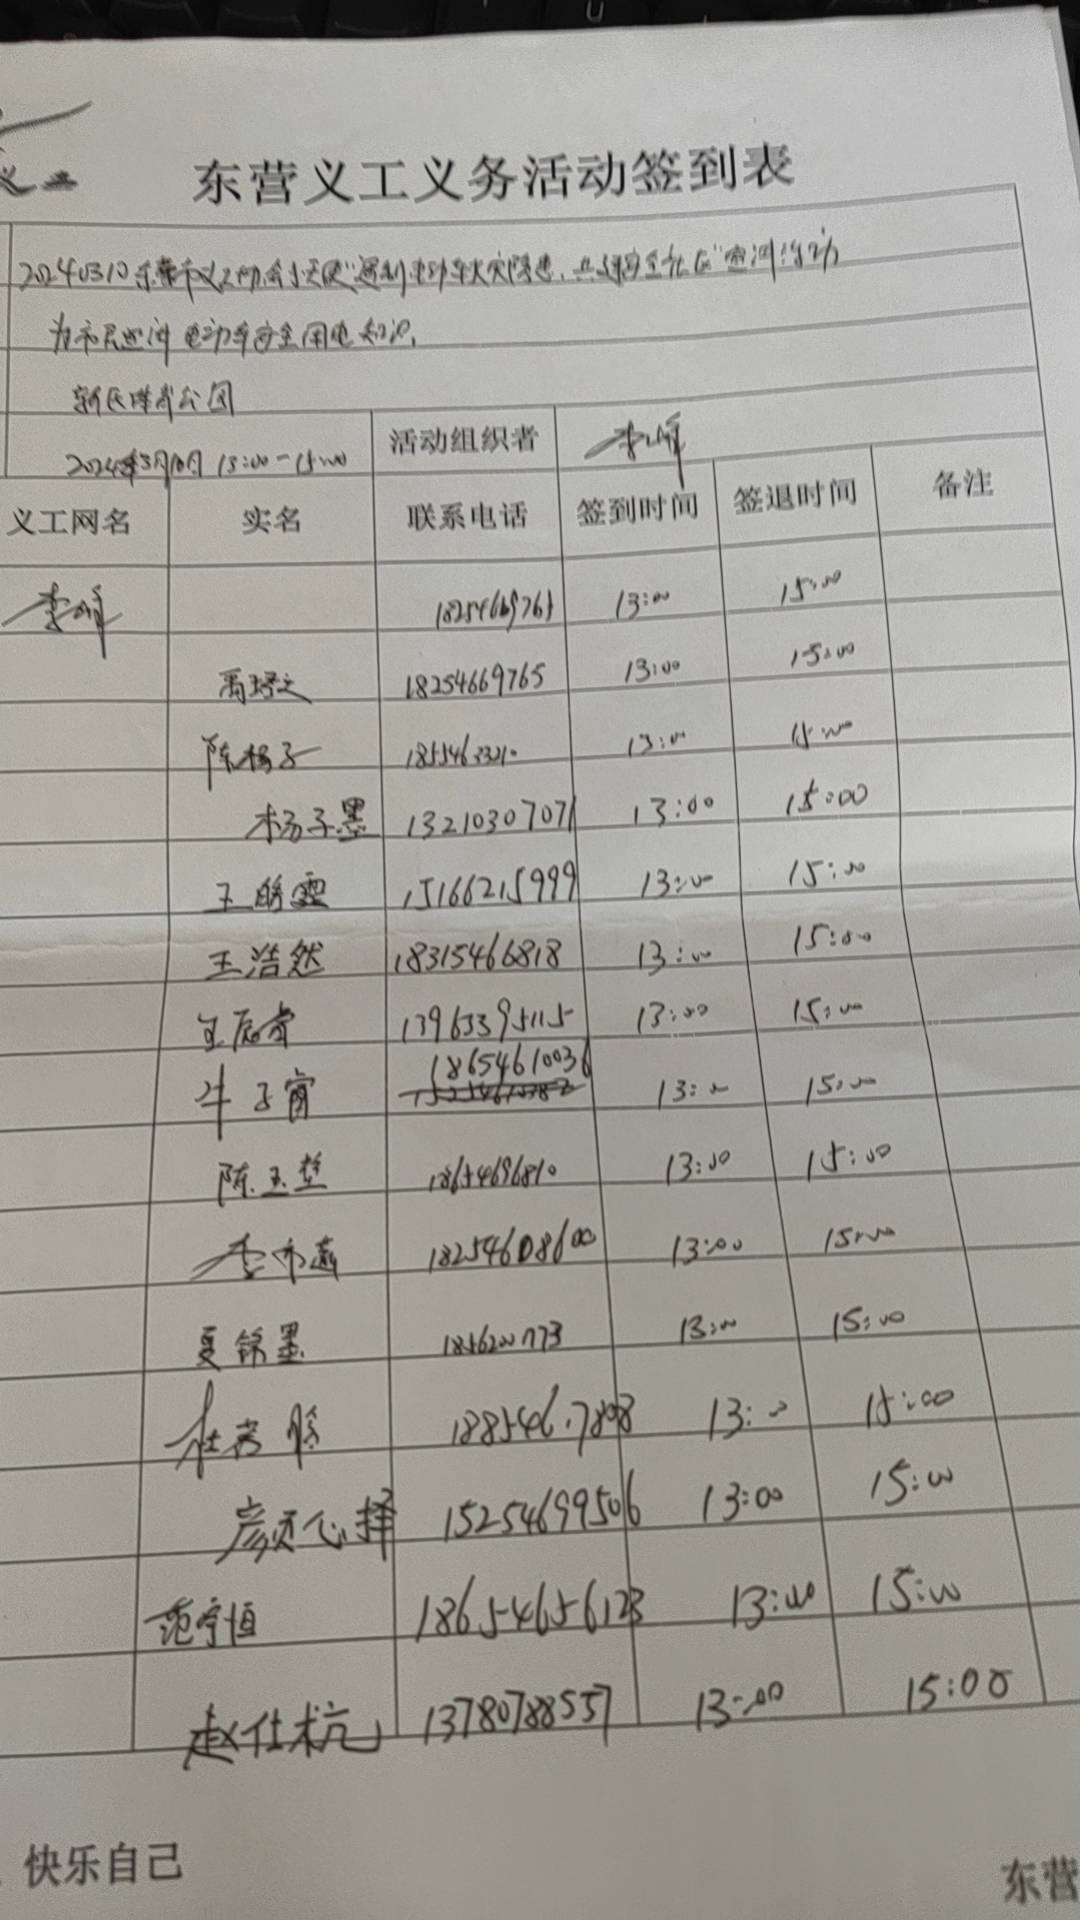 东营义工义务活动签到表
20240310东营市义工协会小天使"遏制电动车火灾隐患,共建安全社区"宣讲活动
为市民宣讲电动车安全用电知识.
新区体育公园
2024年3月10日 13:00-15:00 活动组织者 李峰
义工网名 实名 联系电话 签到时间 签退时间 备注
李峰 13:00 15:00
18254669765 13:00 15:00
陈杨子 13:00 15:00
杨子墨 13210307071 13:00 15:00
王 15166215999 13:00 15:00
王浩然 18315466818 13:00 15:00
王 13963395115 13:00 15:00
牛子 18654610036 13:00 15:00
陈玉 18654696810 13:00 15:00
李 18254608600 13:00 15:00
夏锦墨 13:00 15:00
杜 13:00 15:00
颜 择 15254699506 13:00 15:00
范宇恒 18654656123 13:00 15:00
赵仕杭 13780788557 13:00 15:00
快乐自己
东营